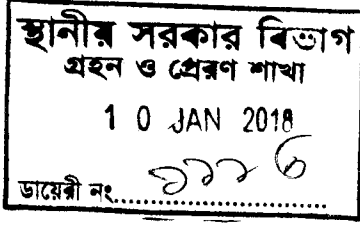 স্থানীয় সরকার বিভাগ
গ্রহন ও প্রেরণ শাখা
1 0 JAN 2018
ডায়েরী নং